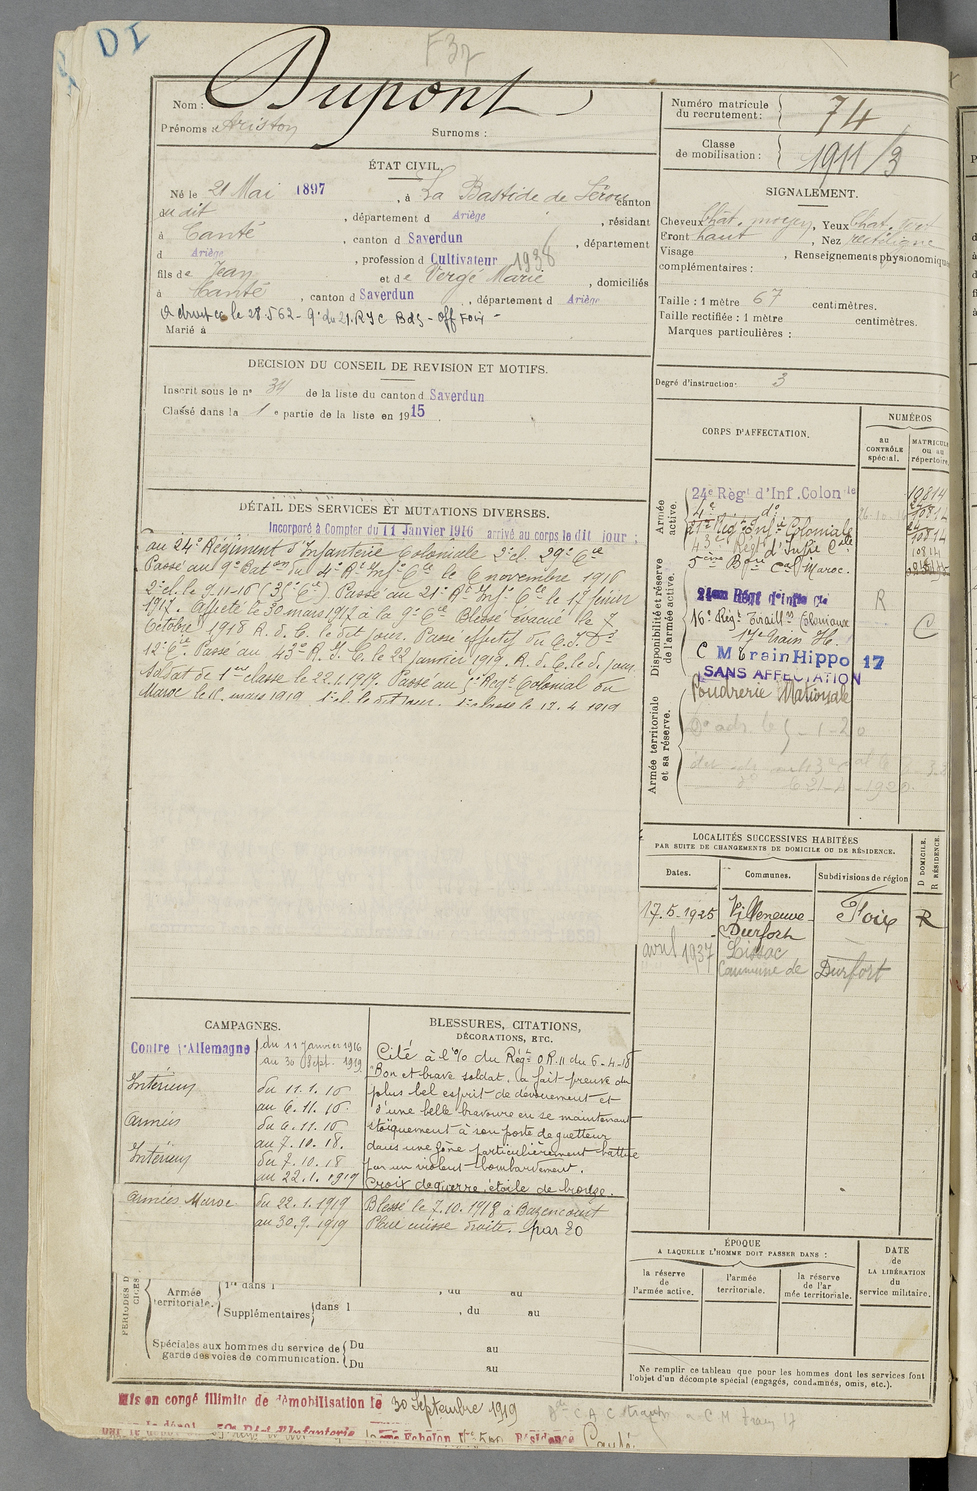 D I
F 37
Nom : Dupont
Prénoms : Ariston Surnoms :
Numéro matricule du recrutement : 74
Classe de mobilisation : 1911/3
ÉTAT CIVIL.
Né le 21 Mai 1897, à La Bastide de Sérou canton
du dit, département d Ariège, résidant
à Canté, canton d Saverdun, département
d Ariège, profession d Cultivateur 1938
fils de Jean et de Vergé Marie, domiciliés
à Canté, canton d Saverdun, département d Ariège
Marié à
SIGNALEMENT.
Cheveux Chât. moyen, Yeux Chat.
Front haut, Nez rectiligne
Visage , Renseignements physionomiques
complémentaires :
Taille : 1 mètre 67 centimètres.
Taille rectifiée : 1 mètre centimètres.
Marques particulières :
Degré d'instruction : 3
DECISION DU CONSEIL DE REVISION ET MOTIFS.
Inscrit sous le n° 34 de la liste du canton d Saverdun
Classé dans la 1e partie de la liste en 1915
DÉTAIL DES SERVICES ET MUTATIONS DIVERSES.
Incorporé à Compter du 11 Janvier 1916 arrivé au corps le dit jour ;
au 24e Régiment d'Infanterie Coloniale 2e cl. 29e Cie
Passé au 9e Baton du 4e Rt Infie Cle le 6 novembre 1916
2e cl. le 9-11-16 (35e Cie). Passé au 21e Rt Infie Cle le 17 février
1917. Affecté le 30 mars 1917 à la 9e Cie Blessé évacué le 7
Octobre 1918 R. d. C. le dit jour. Passé effectif du
12e Cie. Passé au 43e R. I. C. le 22 janvier 1919. R. d. C. le d. jour.
Soldat de 1ere classe le 22.1.1919. Passé au Regt Colonial du
Maroc le 15 mars 1919
CORPS D'AFFECTATION.
NUMÉROS
au CONTRÔLE spécial.
MATRICULE ou au répertoire.
Armée active.
24e Régt d'Inf. Colonle 10814
4e do 10814
21e Régt Infie Coloniale 10814
43e Régt d'Infie Cle 10814
5ème Bon Cal Maroc.
Disponibilité et réserve de l'armée active.
21em Régt d'infie Cle R
16e Régt Tiraillrs Coloniaux
17e Train H. C
C M Train Hippo 17
SANS AFFECTATION
Poudrerie Nationale
Armée territoriale et sa réserve.
LOCALITÉS SUCCESSIVES HABITÉES
PAR SUITE DE CHANGEMENTS DE DOMICILE OU DE RÉSIDENCE.
Dates. Communes. Subdivisions de région D DOMICILE. R RÉSIDENCE.
17-5-1925 Villeneuve- Foix R
Durfort
avril 1937 Lissac
Commune de Durfort
CAMPAGNES.
Contre l'Allemagne du 11 janvier 1916
au 30 Sept. 1919
Intérieur du 11.1.16
au 6.11.16
Armées du 6.11.16
au 7.10.18.
Intérieur du 7.10.18
au 22.1.1919
Armées Maroc du 22.1.1919
au 30.9.1919
BLESSURES, CITATIONS,
DÉCORATIONS, ETC.
Cité à l'% du Régt O R.11 du 6-4-18
"Bon et brave soldat, a fait preuve du
plus bel esprit de dévouement et
d'une belle bravoure en se maintenant
stoïquement à son poste de guetteur
dans une zône particulièrement battue
par un violent bombardement.
Croix de guerre, étoile de bronze.
Blessé le 7.10.1918 à Bazencourt
Plaie cuisse droite. par EO
Armée territoriale.
dans l , du au
Supplémentaires dans l , du au
Spéciales aux hommes du service de garde des voies de communication.
Du au
Du au
ÉPOQUE
A LAQUELLE L'HOMME DOIT PASSER DANS :
la réserve de l'armée active.
l'armée territoriale.
la réserve de l'armée territoriale.
DATE de LA LIBÉRATION du service militaire.
Ne remplir ce tableau que pour les hommes dont les services font
l'objet d'un décompte spécial (engagés, condamnés, omis, etc.).
Mis en congé illimité de démobilisation le 30 Septembre 1919
Echelon Résidence Canté